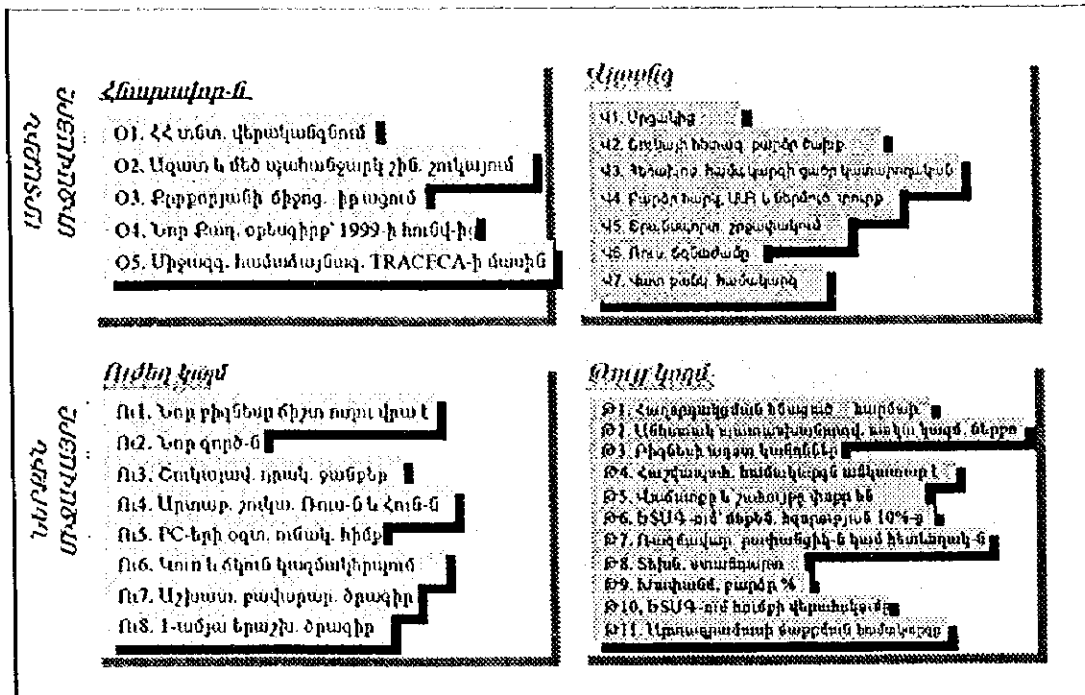 ԱՐՏԱՔԻՆ
ՄԻՋԱՎԱՅՐԸ
Հնարավոր-ն
Օ1. ՀՀ տնտ. վերականգնում
Օ2. Ազատ և մեծ պահանջարկ շին. շուկայում
Օ3. Քըրքորյանի միջոց. իրացում
Օ4. Նոր Քաղ. օրենգիրք՝ 1999-ի հունվ-ից
Օ5. Միջազգ. համաձայնագ. TRACECA-ի մասին
Վտանգ
Վ1. Մրցակից
Վ2. Շուկայի հետազ. բարձր ծախք
Վ3. համակարգի ցածր կատարողական
Վ4. Բարձր հարկ, ԱԱՀ և ներմուծ. տուրք
Վ5. Տրանսպորտ. շրջափակում
Վ6. Ռուս. ճգնաժամը
Վ7. Վատ բանկ. համակարգ
ՆԵՐՔԻՆ
ՄԻՋԱՎԱՅՐԸ
Ուժեղ կողմ
Ու1. Նոր բիզնեսը ճիշտ ուղու վրա է
Ու2. Նոր գործ-ն
Ու3. Շուկայավ. որակ. ջանքեր
Ու4. Արտաք. շուկա. Ռուս-ն և Հուն-ն
Ու5. PC-երի օգտ. ունակ. հիմք
Ու6. Կուռ և ճկուն կազմակերպում
Ու7. Աշխատ. բավարար. ծրագիր
Ու8. 1-ամյա երաշխ. ծրագիր
Թույլ կողմ
Թ1. Հաղորդակցման հնացած հարմար.
Թ2. Անհստակ պատասխանատվ. առկա կազմ. ներքո
Թ3. Բիզնեսի աղոտ կանոններ
Թ4. Հաշվապահ. համակարգն անկատար է
Թ5. Վաճառքը և շահույթը փոքր են
Թ6. ԵՏԱԳ-ում մեքեն. հզորություն 10%-ը
Թ7. Ռազմավար. բաժանցիկ-ն կամ հետևողակ-ն
Թ8. Տեխն. ստանդարտ
Թ9. Խոտանմ. բարձր %
Թ10. ԵՏԱԳ-ում հումքի վերահսկումը
Թ11. մաքրման համակարգը